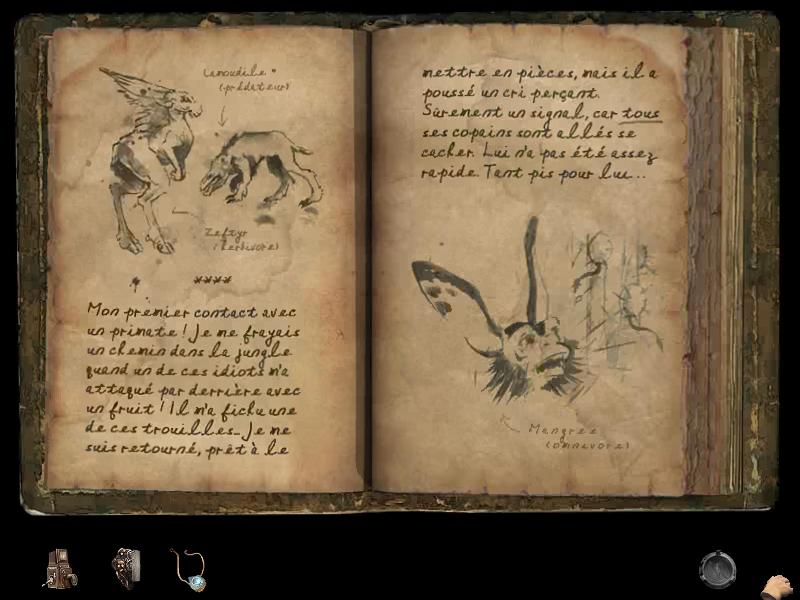 Lamoudile
(prédateur)
Zeftyr
(herbivore)
****
Mon premier contact avec
un primate ! Je me frayais
un chemin dans la jungle
quand un de ces idiots m'a
attaqué par derrière avec
un fruit ! Il m'a fichu une
de ces trouilles... Je me
suis retourné, prêt à le
mettre en pièces, mais il a
poussé un cri perçant.
Sûrement un signal, car tous
ses copains sont allés se
cacher. Lui n'a pas été assez
rapide. Tant pis pour lui...
Mangree
(omnivore)